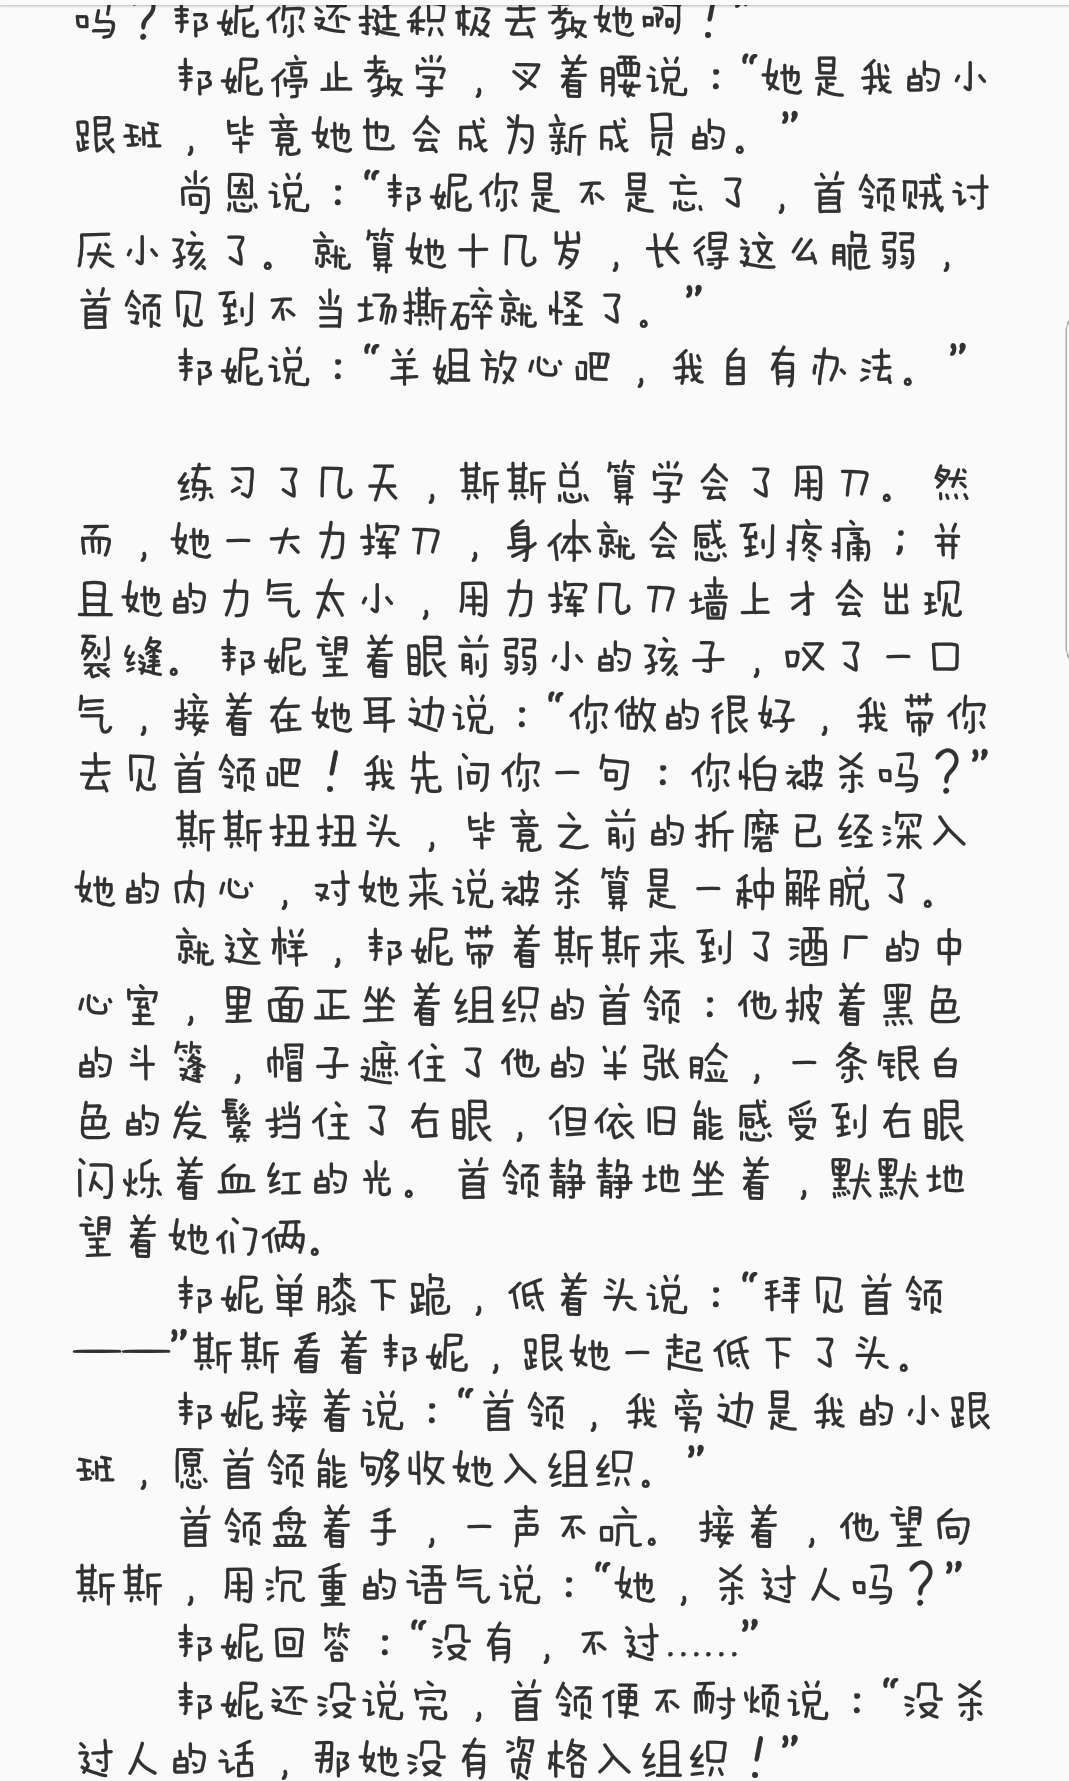 吗？邦妮你还挺积极去教她啊！”
邦妮停止教学，叉着腰说：“她是我的小
跟班，毕竟她也会成为新成员的。”
尚恩说：“邦妮你是不是忘了，首领贼讨
厌小孩了。就算她十几岁，长得这么脆弱，
首领见到不当场撕碎就怪了。”
邦妮说：“羊姐放心吧，我自有办法。”
练习了几天，斯斯总算学会了用刀。然
而，她一大力挥刀，身体就会感到疼痛；并
且她的力气太小，用力挥几刀墙上才会出现
裂缝。邦妮望着眼前弱小的孩子，叹了一口
气，接着在她耳边说：“你做的很好，我带你
去见首领吧！我先问你一句：你怕被杀吗？”
斯斯扭扭头，毕竟之前的折磨已经深入
她的内心，对她来说被杀算是一种解脱了。
就这样，邦妮带着斯斯来到了酒厂的中
心室，里面正坐着组织的首领：他披着黑色
的斗篷，帽子遮住了他的半张脸，一条银白
色的发鬓挡住了右眼，但依旧能感受到右眼
闪烁着血红的光。首领静静地坐着，默默地
望着她们俩。
邦妮单膝下跪，低着头说：“拜见首领
——”斯斯看着邦妮，跟她一起低下了头。
邦妮接着说：“首领，我旁边是我的小跟
班，愿首领能够收她入组织。”
首领盘着手，一声不吭。接着，他望向
斯斯，用沉重的语气说：“她，杀过人吗？”
邦妮回答：“没有，不过……”
邦妮还没说完，首领便不耐烦说：“没杀
过人的话，那她没有资格入组织！”